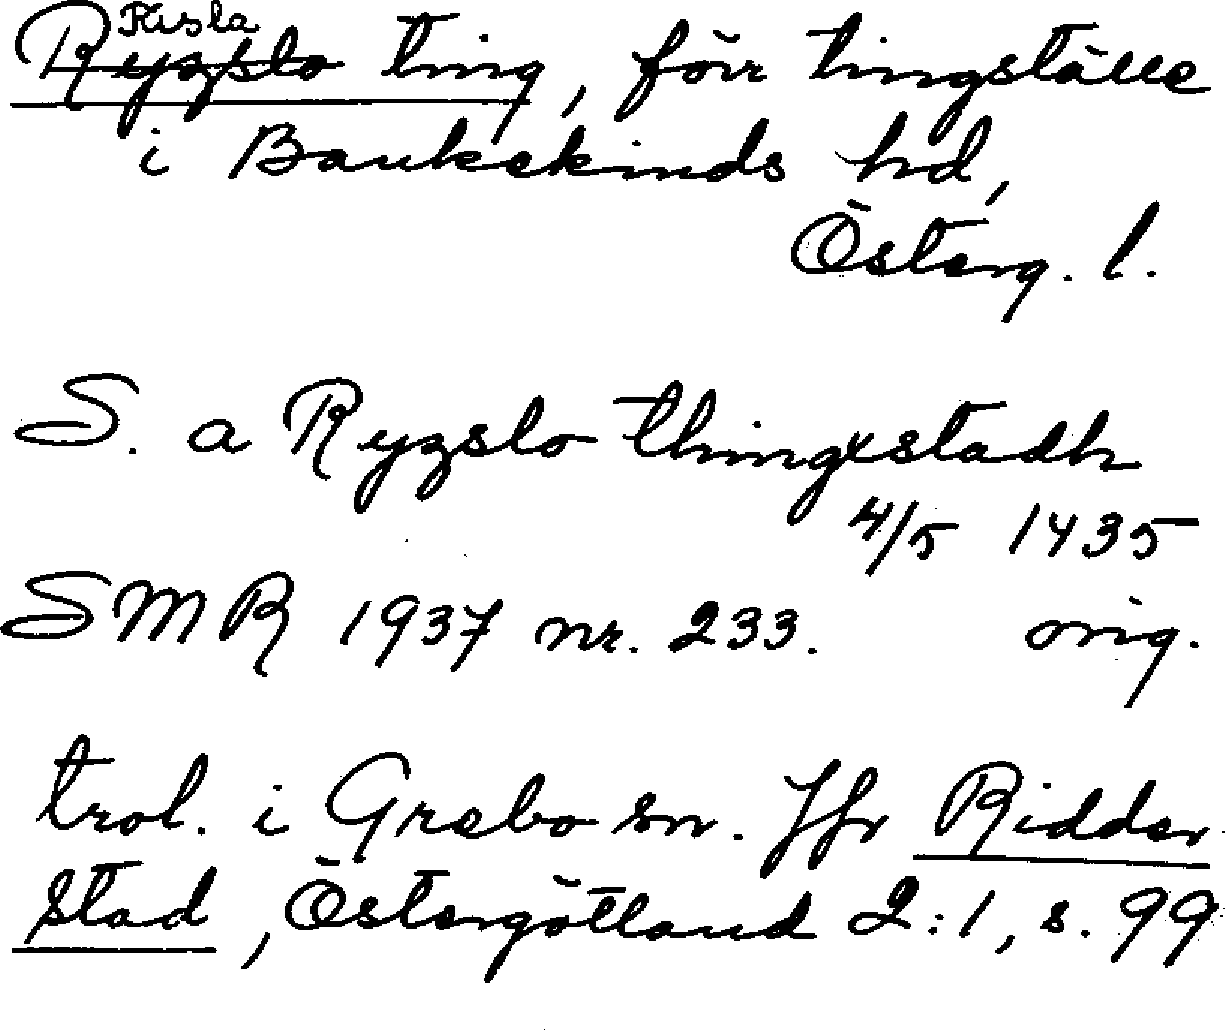 Risla
Ryzslo ting, förr tingställe
i Bankekinds hd,
Österg. l.
S. a Ryzslo thingxstadh
4/5 1435
SMR 1937 nr. 233. orig.
trol. i Grebo sn. Jfr Ridder
stad, Östergötland 2:1, s. 99